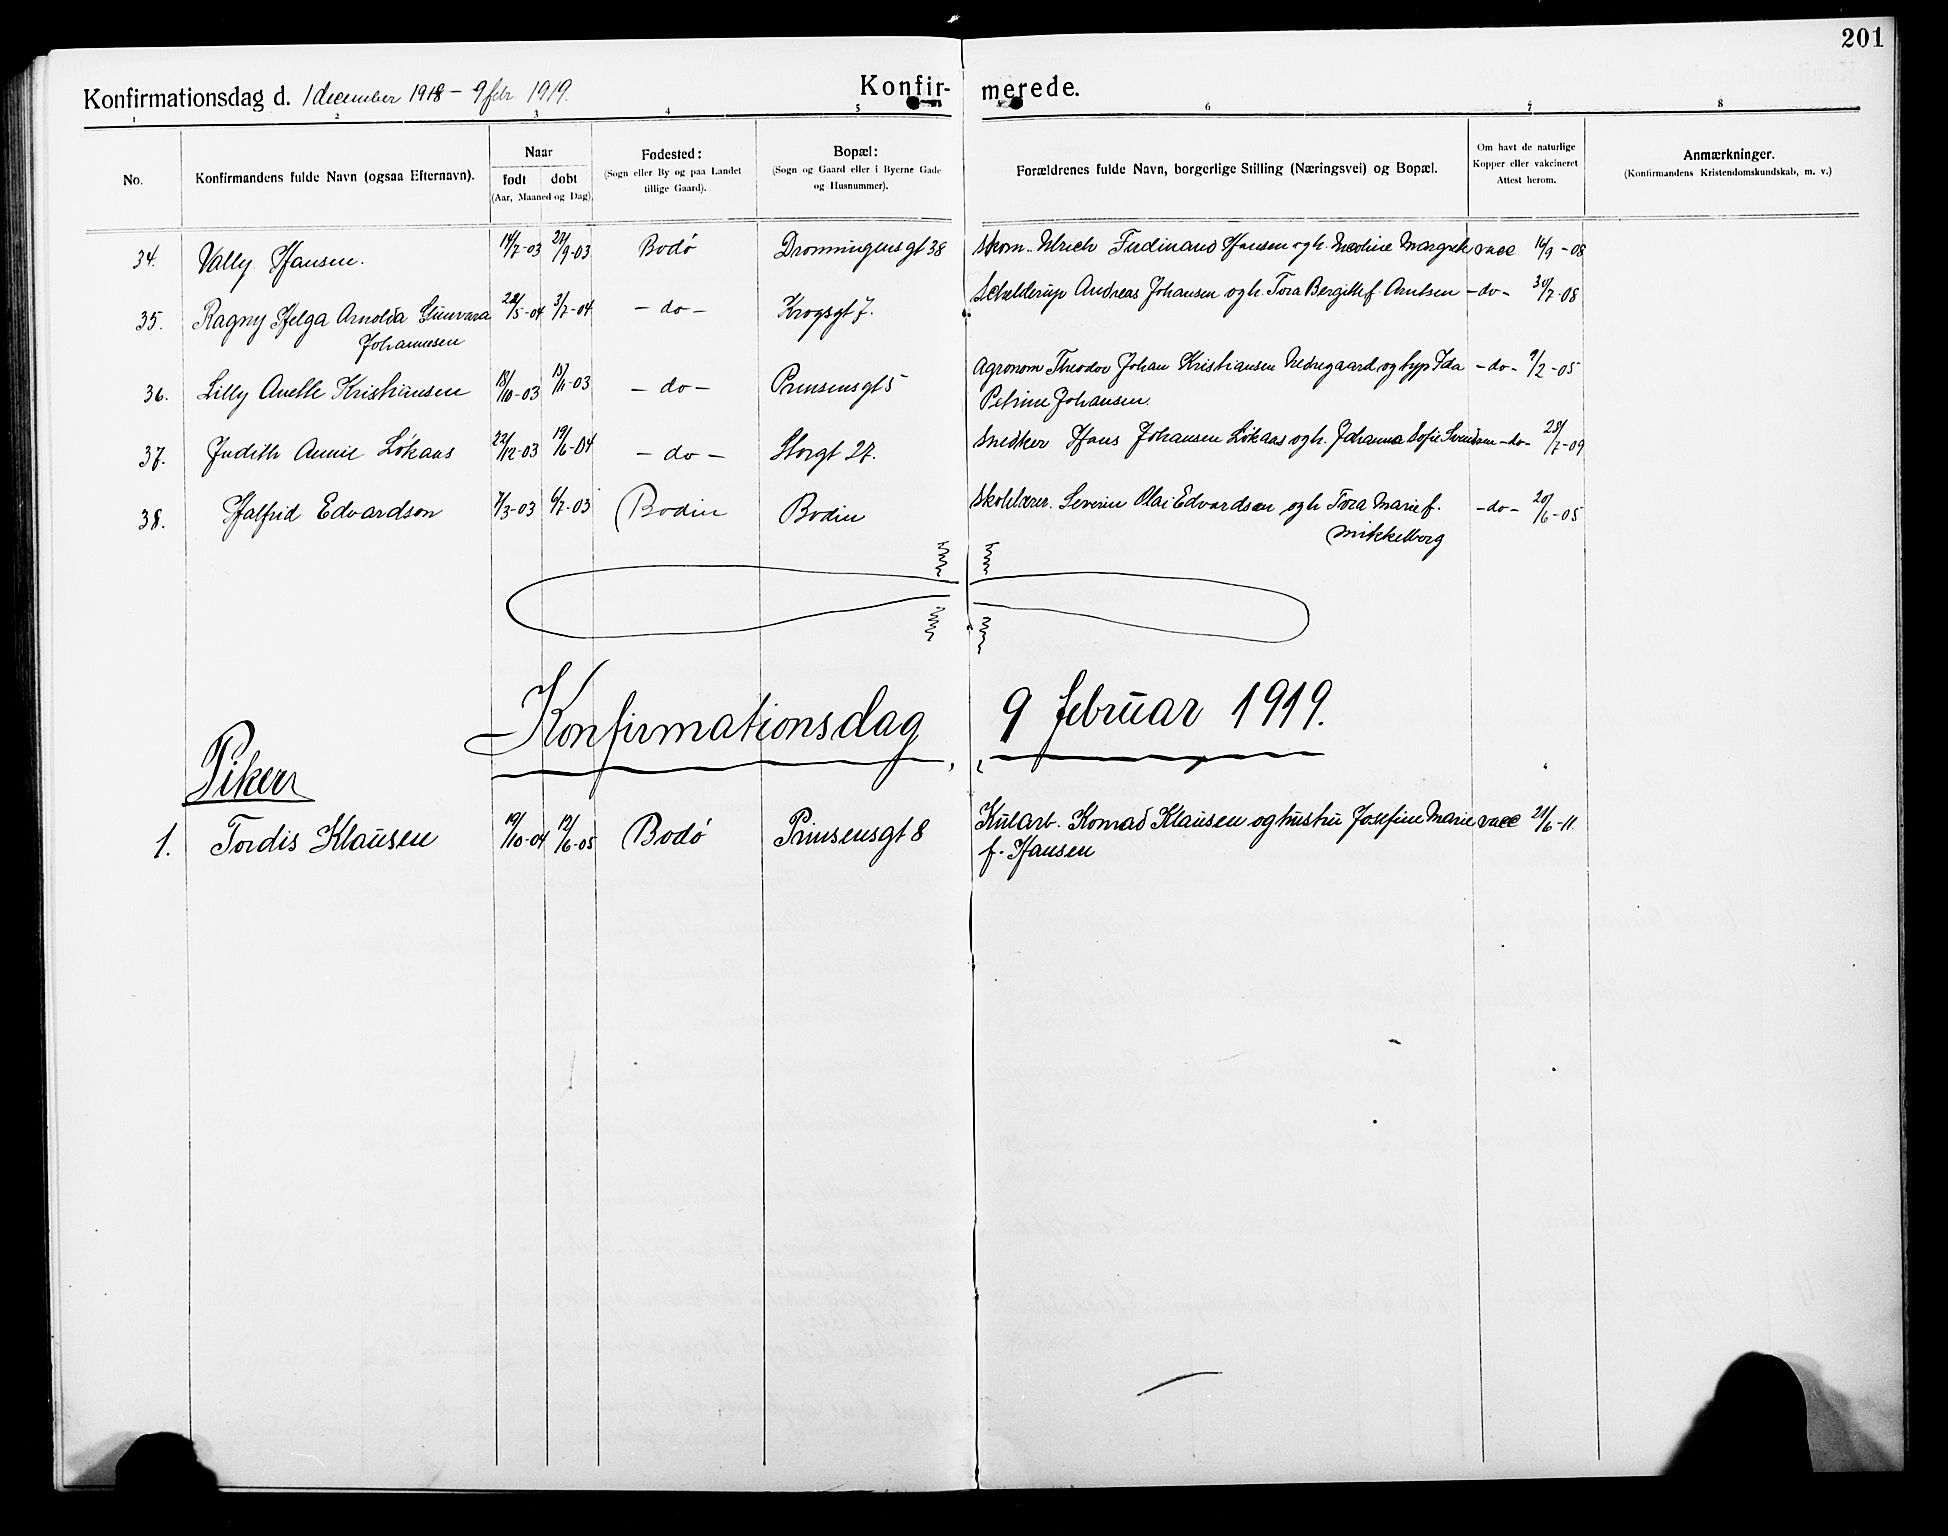 201
Konfirmationsdag d. 1 december 1918 – 9 febr 1919. Konfir- merede.
1 2 3 4 5 6 7 8
No. Konfirmandens fulde Navn (ogsaa Efternavn). Naar født døbt (Aar, Maaned og Dag) Fødested: (Sogn eller By og paa Landet tillige Gaard). Bopæl: (Sogn og Gaard eller i Byerne Gade og Husnummer). Forældrenes fulde Navn, borgerlige Stilling (Næringsvei) og Bopæl. Om havt de naturlige Kopper eller vakcineret Attest herom. Anmærkninger. (Konfirmandens Kristendomskundskab, m. v.)
34. Vally Hansen. 14/7-03 27/9-03 Bodø Dronningensgt 38 Skom. Ulrich Ferdinand Hansen og h. Margrete vacc 14/9-08
35. Ragny Helga Arnolda Gunvara 28/5-04 3/7-04 – do – Krogsgt 7. Schelderup Andreas Johansen og h. Tora Bergitte f Arntsen – do – 30/7-08
Johannesen
36. Lilly Anette Kristiansen 18/10-03 15/11-03 – do – Prinsensgt 5 Agronom Theodor Johan Kristiansen Nedregaard og hyp Ida – do – 9/2-05
Petrine Johansen.
37. Judith Annie Løkaas 22/12-03 19/6-04 – do – Storgt 27. Snedker Hans Johansen Løkaas og h. Johanna Sofie Svendsen – do – 28/7-09
38. Halfrid Edvardson 7/3-03 6/7-03 Bodin Bodin Skolelærer. Severin Olai Edvardsen og h Tora Marie f. – do – 20/6-05
Mikkelborg
Konfirmationsdag 9 februar 1919.
Piker
1. Tordis Klausen 19/10-04 12/6-05 Bodø Prinsensgt 8 Kularb. Konrad Klausen og hustru Josefine Marie vacc 21/6-11
f. Hansen